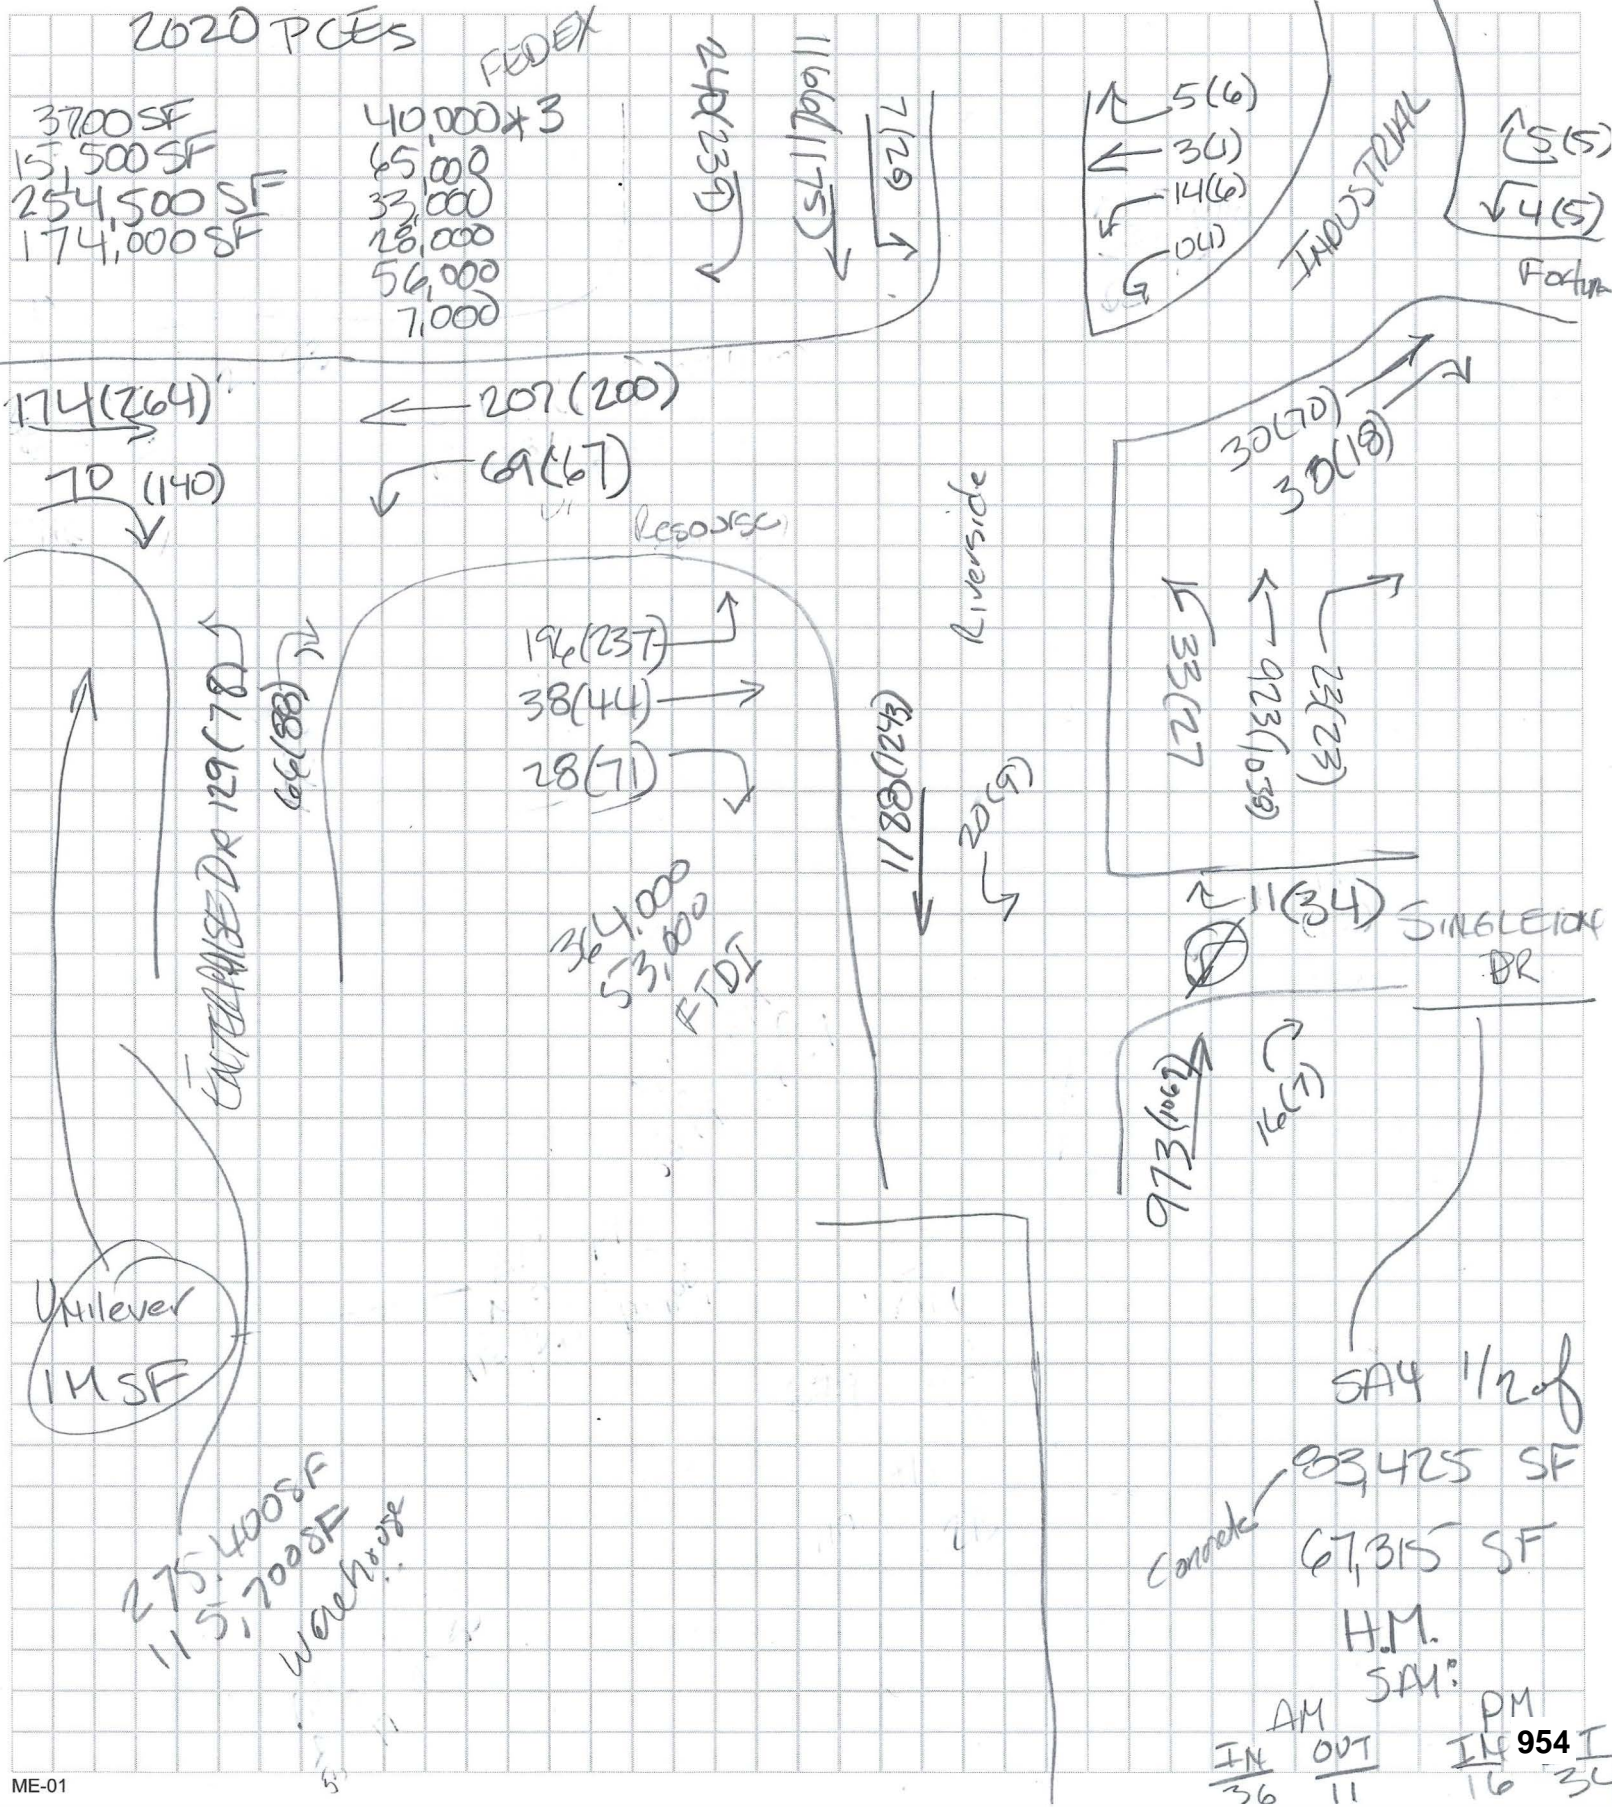 2020 PCES
3700 SF
15,500 SF
254,500 SF
174,000 SF
FEDEX
40,000 * 3
65,000
33,000
28,000
56,000
7,000
240(239)
1166(1175)
7(29)
5(6)
3(1)
14(6)
0(1)
INDUSTRIAL
5(5)
4(5)
174(264)
70 (140)
207(200)
69(67)
Resourse
Riverside
30(70)
30(18)
ENTERPRISE DR 129(78)
66(88)
196(237)
38(44)
28(71)
1188(1243)
20(9)
33(27
923(1038)
23(23)
364,000
53,000
FTDI
11(34)
SINGLETON
DR
973(1062)
16(7)
Unilever
1M SF
275,400 SF
115,700 SF
warehouse
SAY 1/2 of
83,425 SF
Concrete
67,315 SF
H.M.
SAY:
AM PM
IN OUT IN
36 11 16
954
ME-01